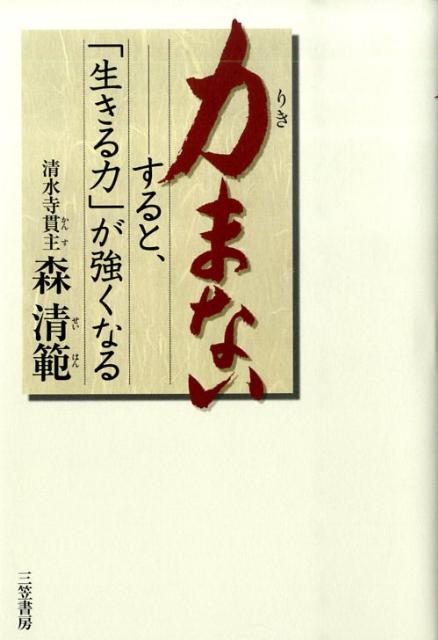 力まない
りき
――すると、
「生きる力」が強くなる
清水寺貫主 森 清範
かんす せいはん
三笠書房